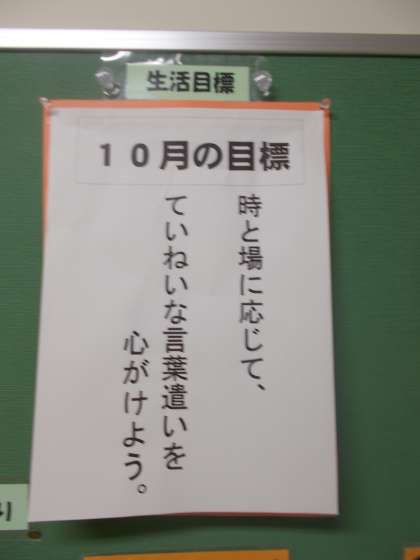 生活目標
10月の目標
時と場に応じて、
ていねいな言葉遣いを
心がけよう。
り